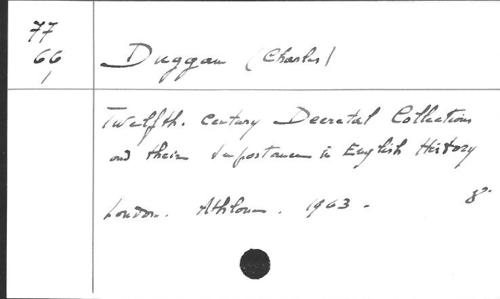 77
66
1
Duggan (Charles)
Twelfth. Century Decretal Collections
and their importance in English History
London. Athlone. 1963. 8°.